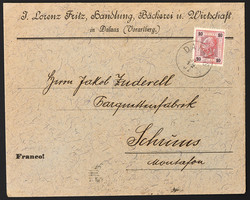 J. Lorenz Fritz, Handlung, Bäckerei u. Wirtschaft
in Dalaas (Vorarlberg.)
Herrn Jakob Zuderell
Parquettenfabrik
Schruns
Montafon
Franco!